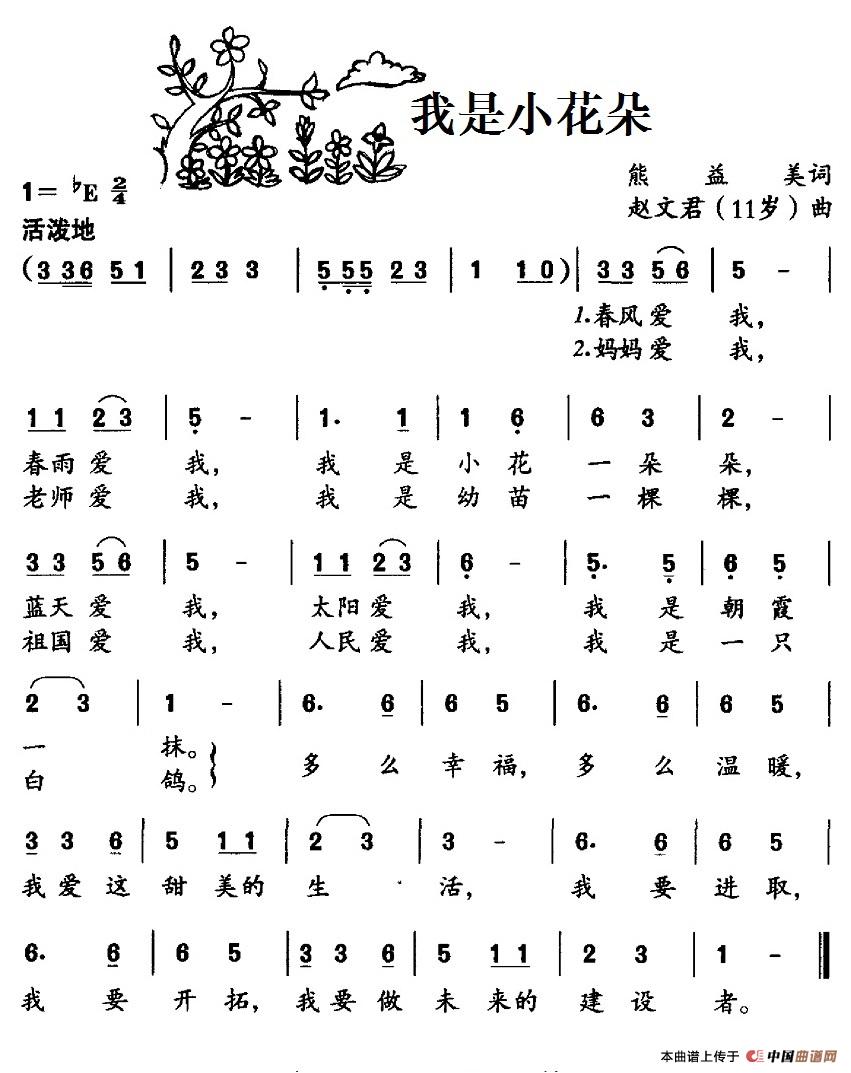 我是小花朵
熊 益 美词
赵文君（11岁）曲
1= ♭E 2/4
活泼地
（3 3 6 5 1 | 2 3 3 | 5 5 5 2 3 | 1 1 0）| 3 3 5 6 | 5 - |
1.春风爱 我，
2.妈妈爱 我，
1 1 2 3 | 5 - | 1. 1 | 1 6 | 6 3 | 2 - |
春雨爱 我， 我 是 小 花 一 朵 朵，
老师爱 我， 我 是 幼 苗 一 棵 棵，
3 3 5 6 | 5 - | 1 1 2 3 | 6 - | 5. 5 | 6 5 |
蓝天爱 我， 太阳爱 我， 我 是 朝 霞
祖国爱 我， 人民爱 我， 我 是 一 只
2 3 | 1 - | 6. 6 | 6 5 | 6. 6 | 6 5 |
一 抹。 多 么 幸 福， 多 么 温 暖，
白 鸽。
3 3 6 | 5 1 1 | 2 3 | 3 - | 6. 6 | 6 5 |
我 爱 这 甜 美的 生 活， 我 要 进 取，
6. 6 | 6 5 | 3 3 6 | 5 1 1 | 2 3 | 1 - ‖
我 要 开 拓， 我 要 做 未 来的 建 设 者。
本曲谱上传于 中国曲谱网